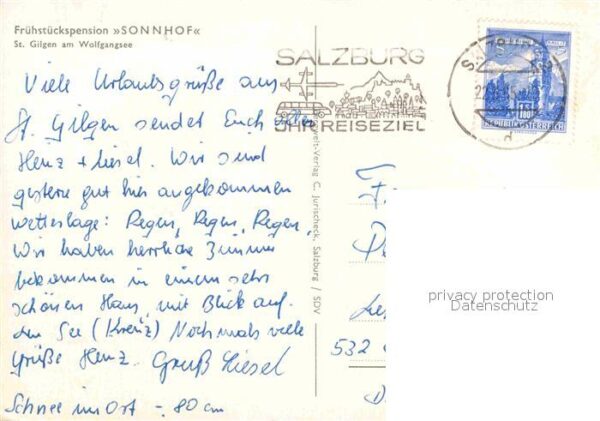 Frühstückspension »SONNHOF«
St. Gilgen am Wolfgangsee
Viele Urlaubsgrüße aus
St. Gilgen sendet Euch
Heinz + Liesel. Wir sind
gestern gut hier angekommen
Wetterlage: Regen, Regen, Regen,
Wir haben herrliche Zimmer
bekommen in einem sehr
schönen Haus, mit Blick auf
den See (Kreuz) Nochmals viele
Grüße Heinz. Gruß Liesel
Schnee im Ort - 80 cm
SALZBURG
IHR REISEZIEL
C. Jurischeck, Salzburg / SDV
REPUBLIK ÖSTERREICH
532
privacy protection
Datenschutz